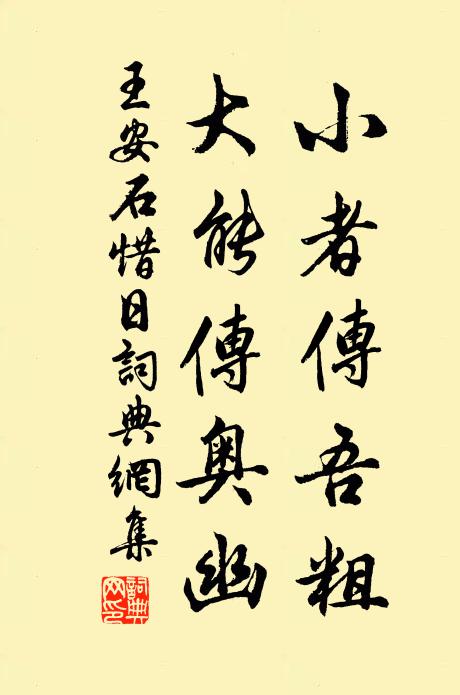 小者傳吾粗
大能傳奧幽
王安石惜日詞典網集
詞典
网印